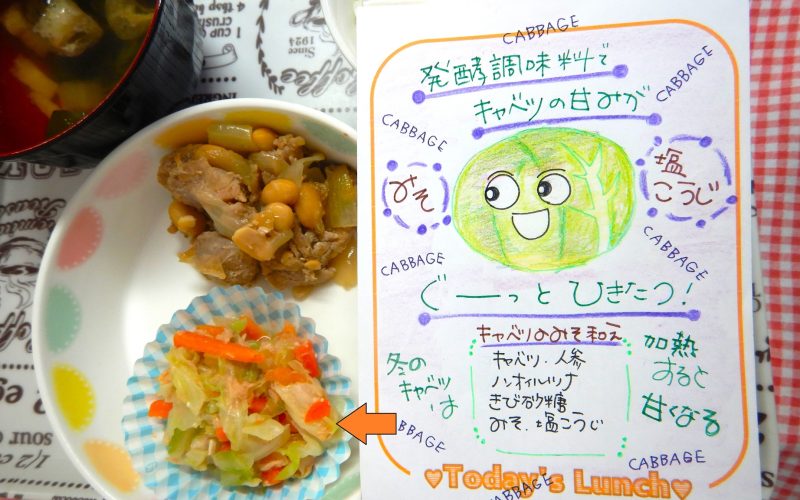 CABBAGE
発酵調味料で
キャベツの甘みが
CABBAGE
CABBAGE
みそ
塩
こうじ
CABBAGE
CABBAGE
ぐーっと ひきたつ!
キャベツのみそ和え
キャベツ・人参
ノンオイルツナ
きび砂糖
みそ・塩こうじ
冬の
キャベツ
は
加熱
すると
甘くなる
CABBAGE
CABBAGE
CABBAGE
♥Today's Lunch♥
1 CUP
Since
1924
Coffee
1/2
sour